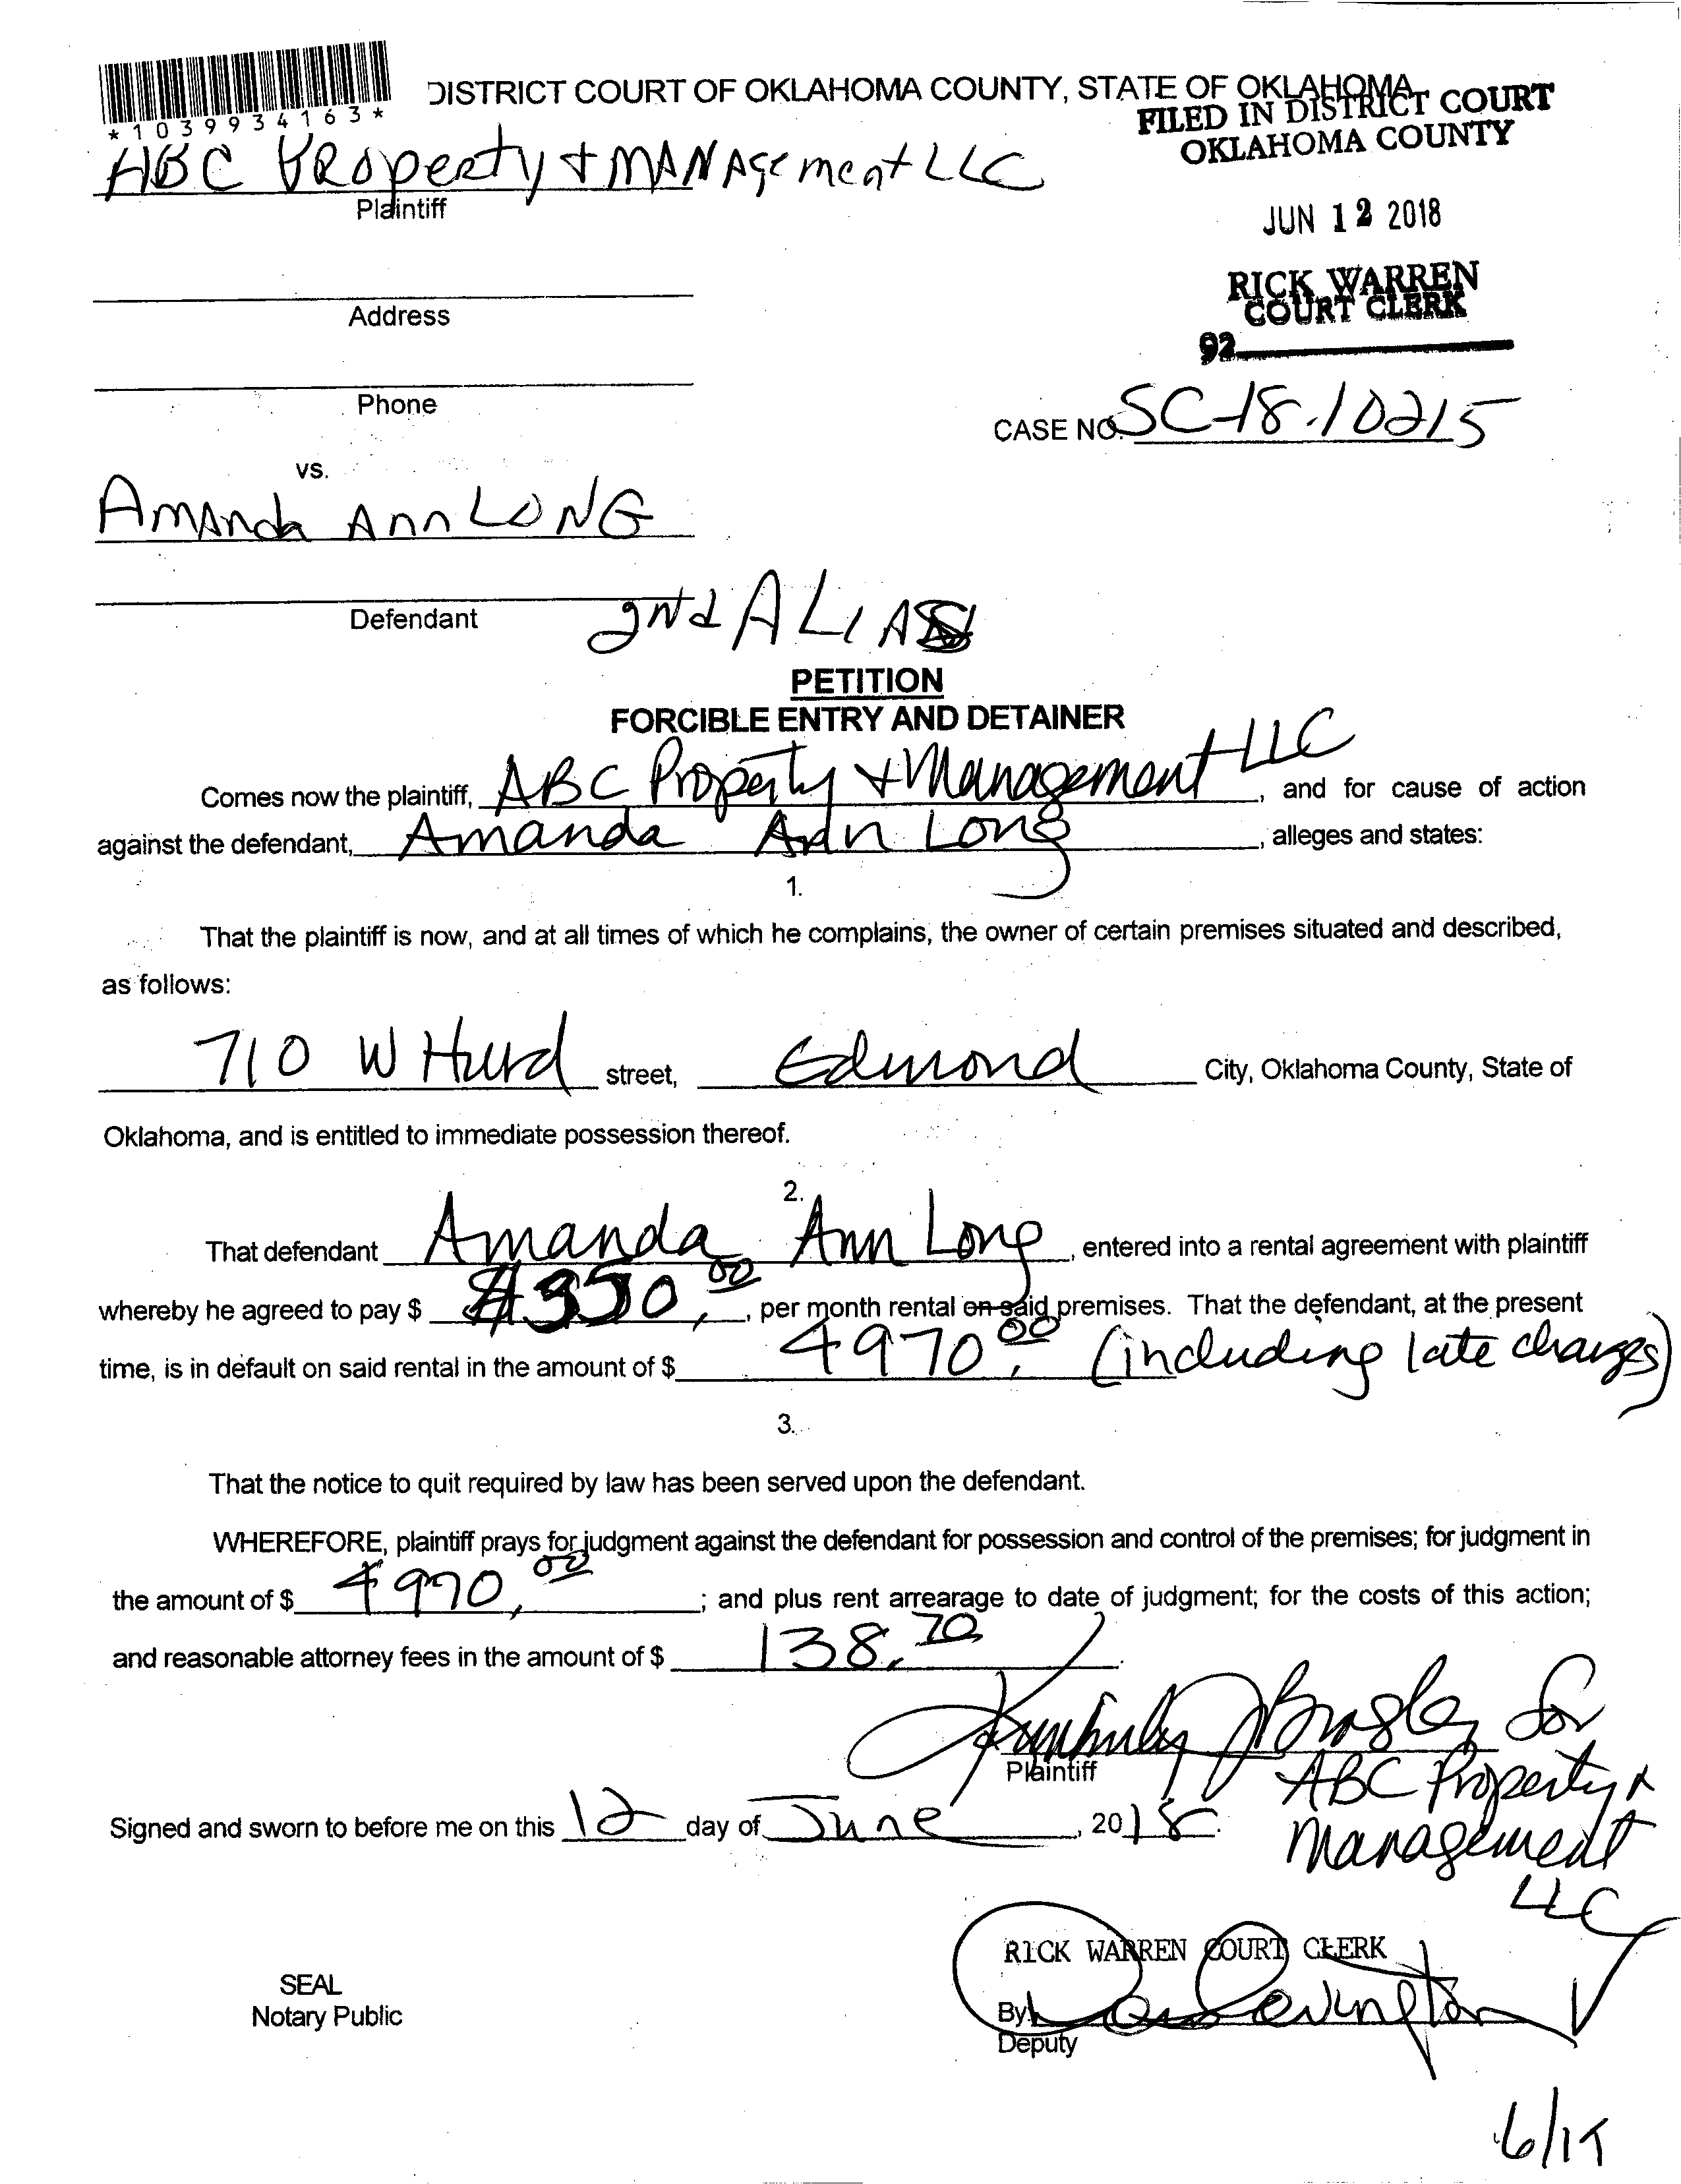 *1039934163*
DISTRICT COURT OF OKLAHOMA COUNTY, STATE OF OKLAHOMA
FILED IN DISTRICT COURT
OKLAHOMA COUNTY
ABC PROperty & MANAgement LLC
Plaintiff
JUN 12 2018
RICK WARREN
COURT CLERK
92
Address
Phone
CASE NO. SC-18-10215
vs.
AmANda Ann LONG
Defendant
2nd ALIAS
PETITION
FORCIBLE ENTRY AND DETAINER
Comes now the plaintiff, ABC Property & Management LLC, and for cause of action
against the defendant, Amanda Ann Long, alleges and states:
1.
That the plaintiff is now, and at all times of which he complains, the owner of certain premises situated and described,
as follows:
710 W Hurd street, Edmond City, Oklahoma County, State of
Oklahoma, and is entitled to immediate possession thereof.
2.
That defendant Amanda Ann Long, entered into a rental agreement with plaintiff
whereby he agreed to pay $ , per month rental on said premises. That the defendant, at the present
time, is in default on said rental in the amount of $ 4970.00 (including late charges)
3.
That the notice to quit required by law has been served upon the defendant.
WHEREFORE, plaintiff prays for judgment against the defendant for possession and control of the premises; for judgment in
the amount of $ 4970.00; and plus rent arrearage to date of judgment; for the costs of this action;
and reasonable attorney fees in the amount of $ 138.70.
Kimberly for
Plaintiff
ABC Property &
Management
LLC
Signed and sworn to before me on this 12 day of June, 2018.
RICK WARREN COURT CLERK
SEAL
Notary Public
By:
Deputy